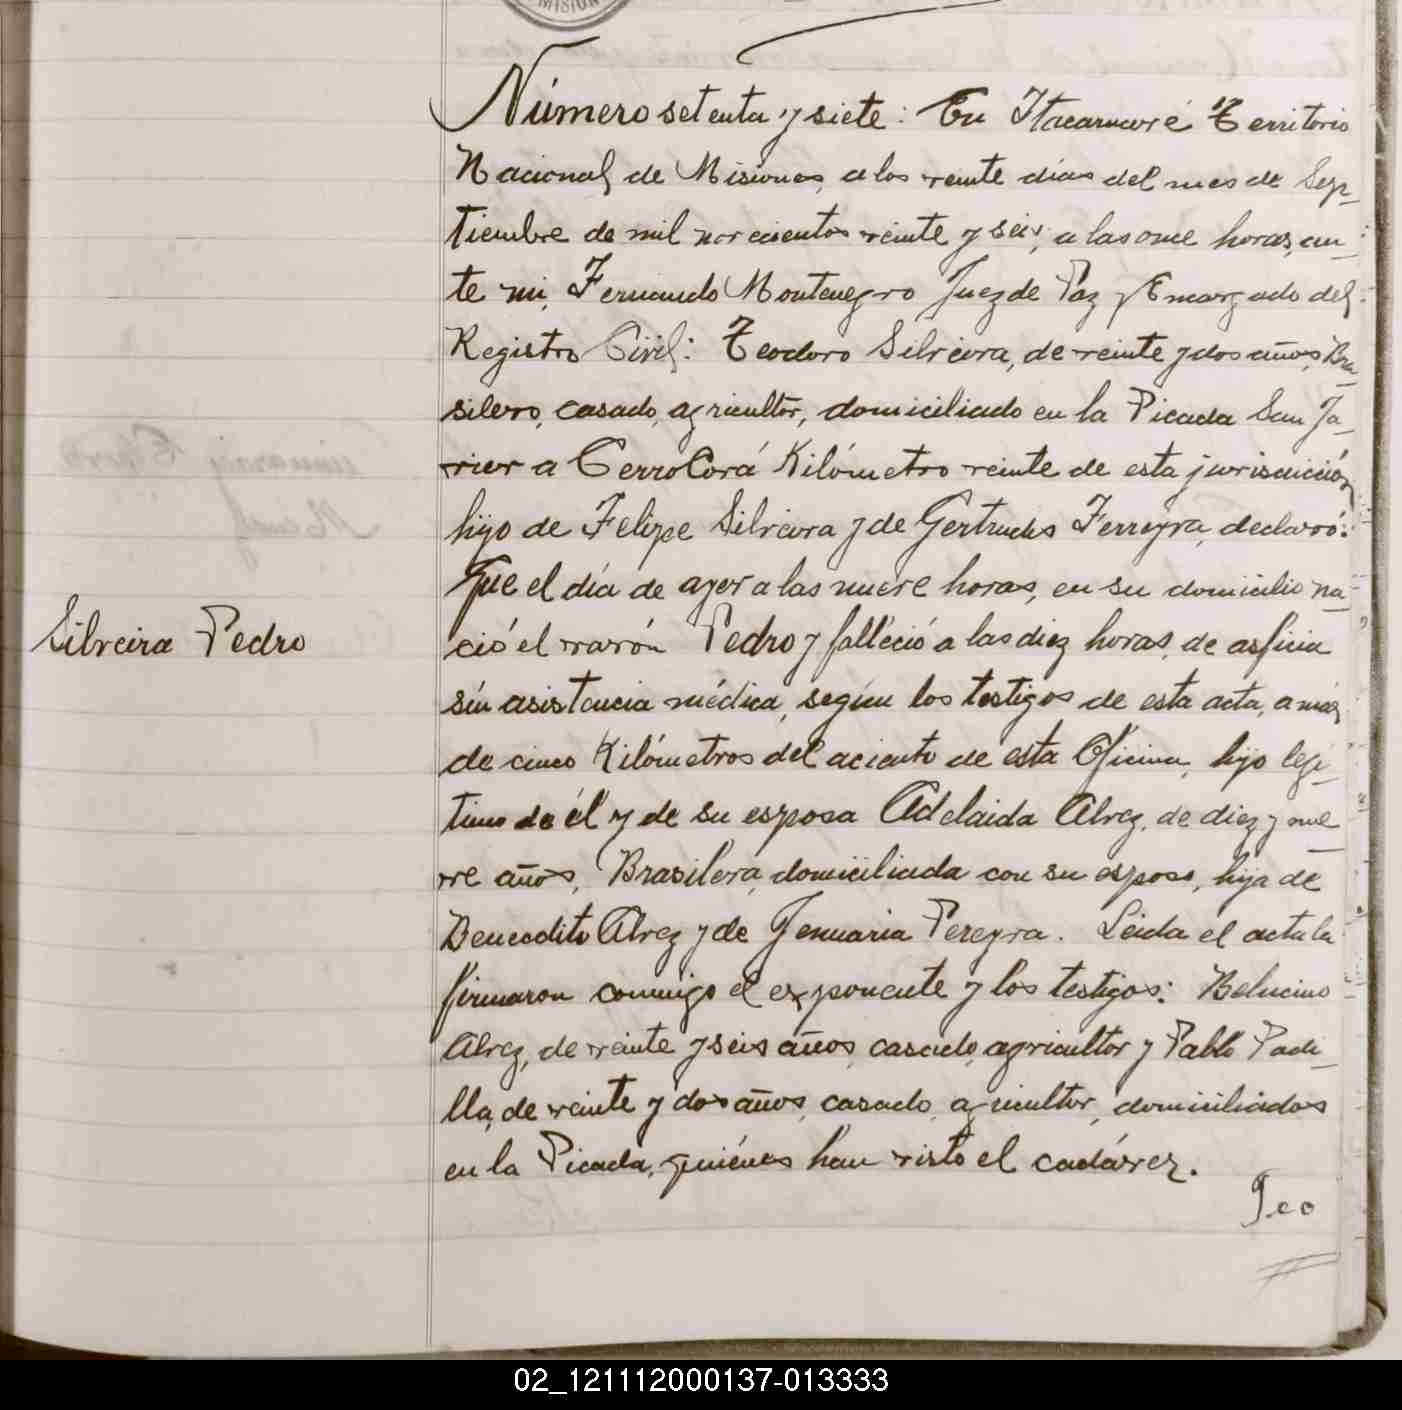 MISION
Número setenta y siete: En Itacaruaré Territorio
Nacional de Misiones, a los veinte días del mes de Sep-
tiembre de mil novecientos veinte y seis, a las once horas, an-
te mi, Fernando Montenegro Juez de Paz y Encargado del
Registro Civil: Teodoro Silveira, de veinte y dos años, Bra-
silero, casado, agricultor, domiciliado en la Picada San Ja-
vier a Cerro Corá Kilómetro veinte de esta jurisdicción
hijo de Felipe Silveira y de Gertrudes Ferreyra, declaró:
Que el día de ayer a las nueve horas, en su domicilio na-
Silveira Pedro
ció el varón Pedro y falleció a las diez horas, de asficia
sin asistencia médica, según los testigos de esta acta, a más
de cinco Kilómetros del aciento de esta Oficina, hijo legi-
timo de él y de su esposa Adelaida Alvez, de diez y nue-
ve años, Brasilera, domiciliada con su esposo, hija de
Benedito Alvez y de Jenuaria Pereyra. Leida el acta la
firmaron conmigo el exponente y los testigos: Belucino
Alvez, de veinte y seis años, casado, agricultor y Pablo Padi-
lla, de veinte y dos años, casado, agricultor, domiciliados
en la Picada, quiénes han visto el cadávez.
Teo
02_121112000137-013333